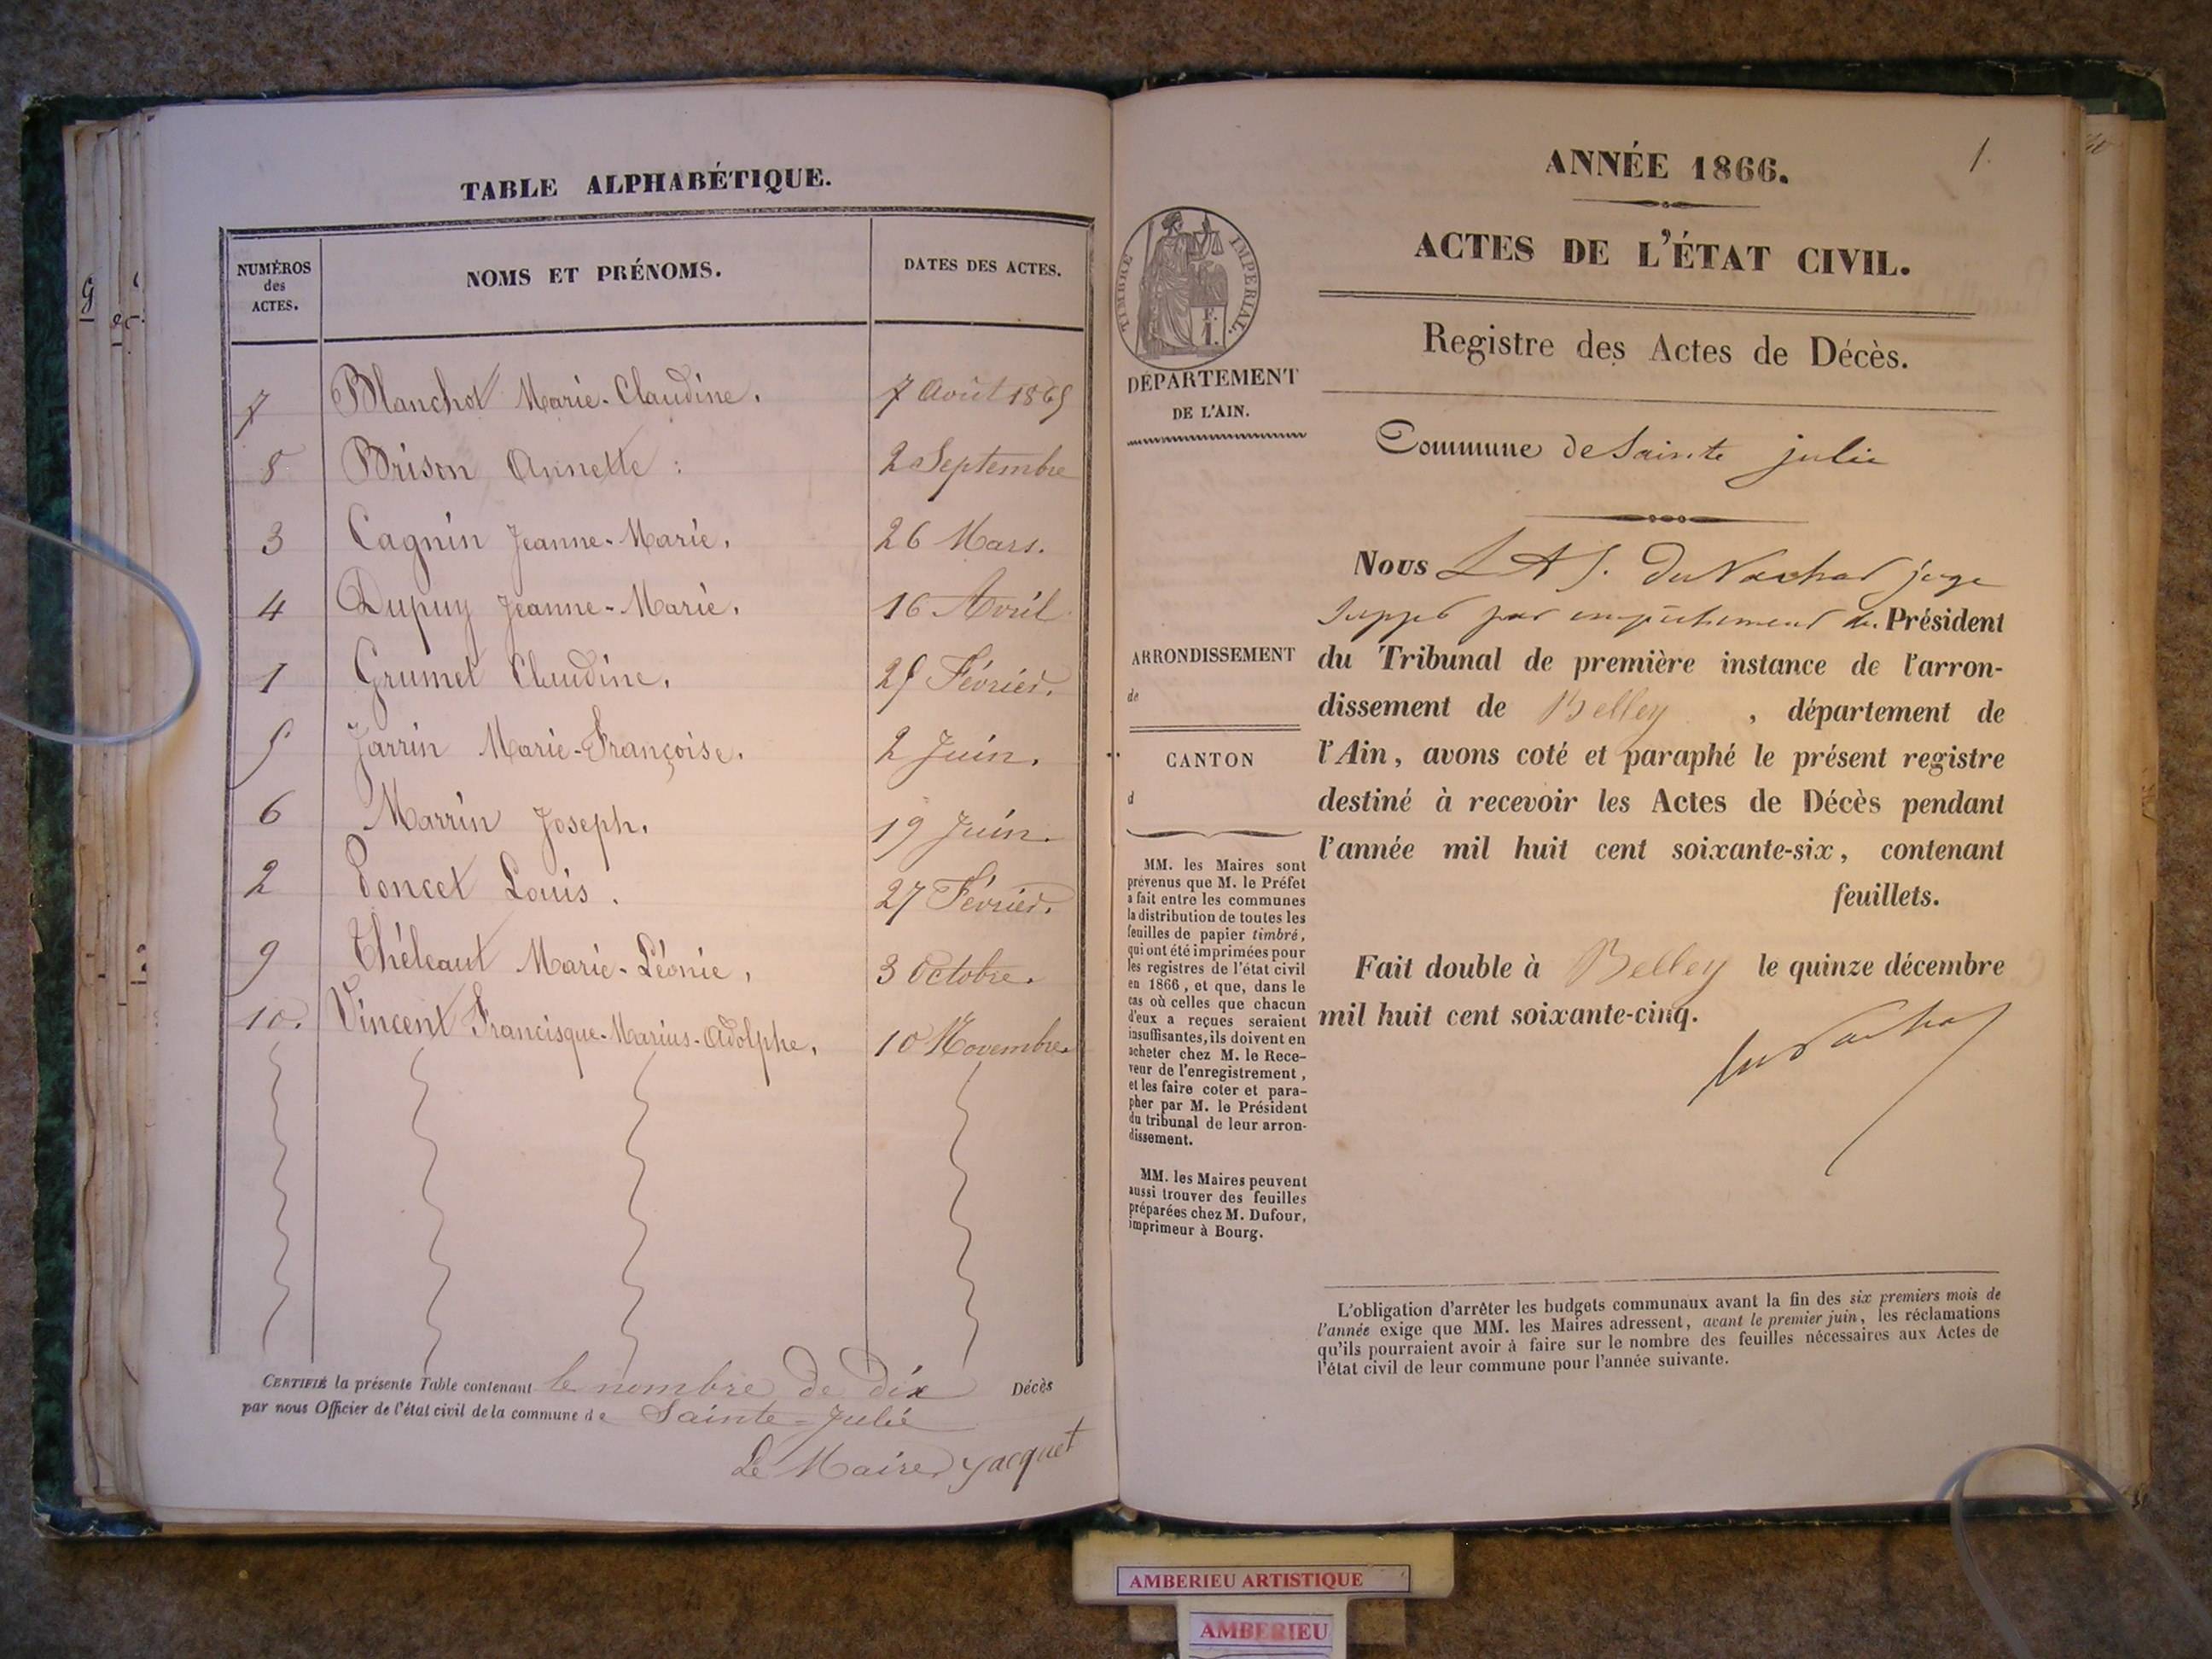 TABLE ALPHABÉTIQUE.
NUMÉROS des ACTES.
NOMS ET PRÉNOMS.
DATES DES ACTES.
7 Blanchot Marie-Claudine. 7 Août 1865
8 Brison Annette : 2 Septembre
3 Cagnin Jeanne-Marie. 26 Mars.
4 Dupuy Jeanne-Marie. 16 Avril
1 Grumet Claudine. 25 Février.
5 Jarrin Marie-Françoise. 2 Juin.
6 Marrin Joseph. 19 Juin.
2 Poncet Louis. 27 Février.
9 Théleaut Marie-Léonie, 3 Octobre.
10. Vincent Francisque-Marius-Adolphe. 10 Novembre
CERTIFIÉ la présente Table contenant le nombre de dix Décès
par nous Officier de l'état civil de la commune de Sainte-Julie
Le Maire Jacquet
1.
ANNÉE 1866.
ACTES DE L'ÉTAT CIVIL.
Registre des Actes de Décès.
TIMBRE IMPÉRIAL.
DÉPARTEMENT
DE L'AIN.
Commune de Sainte julie
Nous juge
par empêchement du Président
du Tribunal de première instance de l'arron-
dissement de Belley , département de
l'Ain, avons coté et paraphé le présent registre
destiné à recevoir les Actes de Décès pendant
l'année mil huit cent soixante-six, contenant
feuillets.
Fait double à Belley le quinze décembre
mil huit cent soixante-cinq.
ARRONDISSEMENT
de
CANTON
d
MM. les Maires sont
prévenus que M. le Préfet
a fait entre les communes
la distribution de toutes les
feuilles de papier timbré,
qui ont été imprimées pour
les registres de l'état civil
en 1866, et que, dans le
cas où celles que chacun
d'eux a reçues seraient
insuffisantes, ils doivent en
acheter chez M. le Rece-
veur de l'enregistrement,
et les faire coter et para-
pher par M. le Président
du tribunal de leur arron-
dissement.
MM. les Maires peuvent
aussi trouver des feuilles
préparées chez M. Dufour,
imprimeur à Bourg.
L'obligation d'arrêter les budgets communaux avant la fin des six premiers mois de
l'année exige que MM. les Maires adressent, avant le premier juin, les réclamations
qu'ils pourraient avoir à faire sur le nombre des feuilles nécessaires aux Actes de
l'état civil de leur commune pour l'année suivante.
AMBERIEU ARTISTIQUE
AMBERIEU